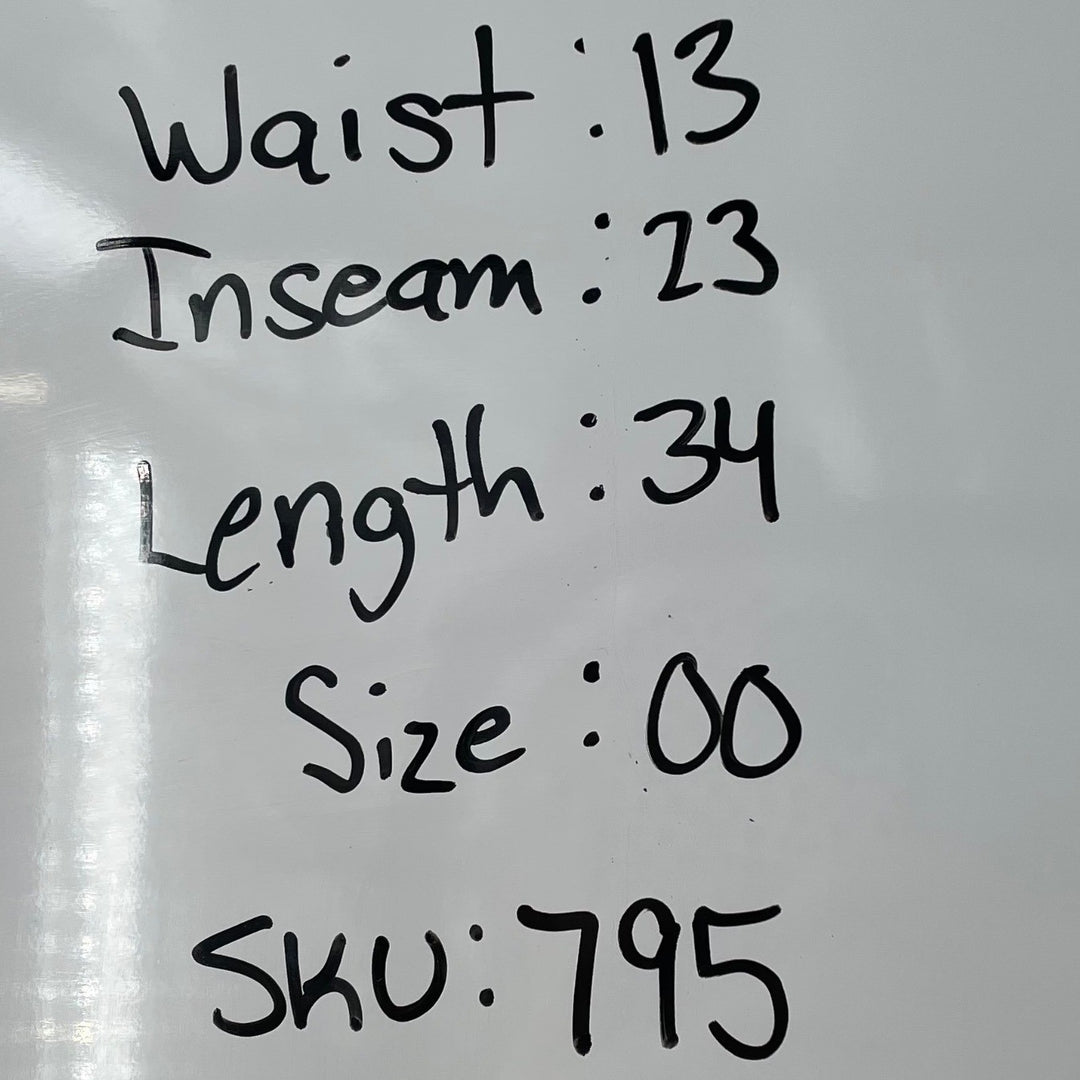 Waist : 13
Inseam : 23
Length : 34
Size : 00
SKU : 795